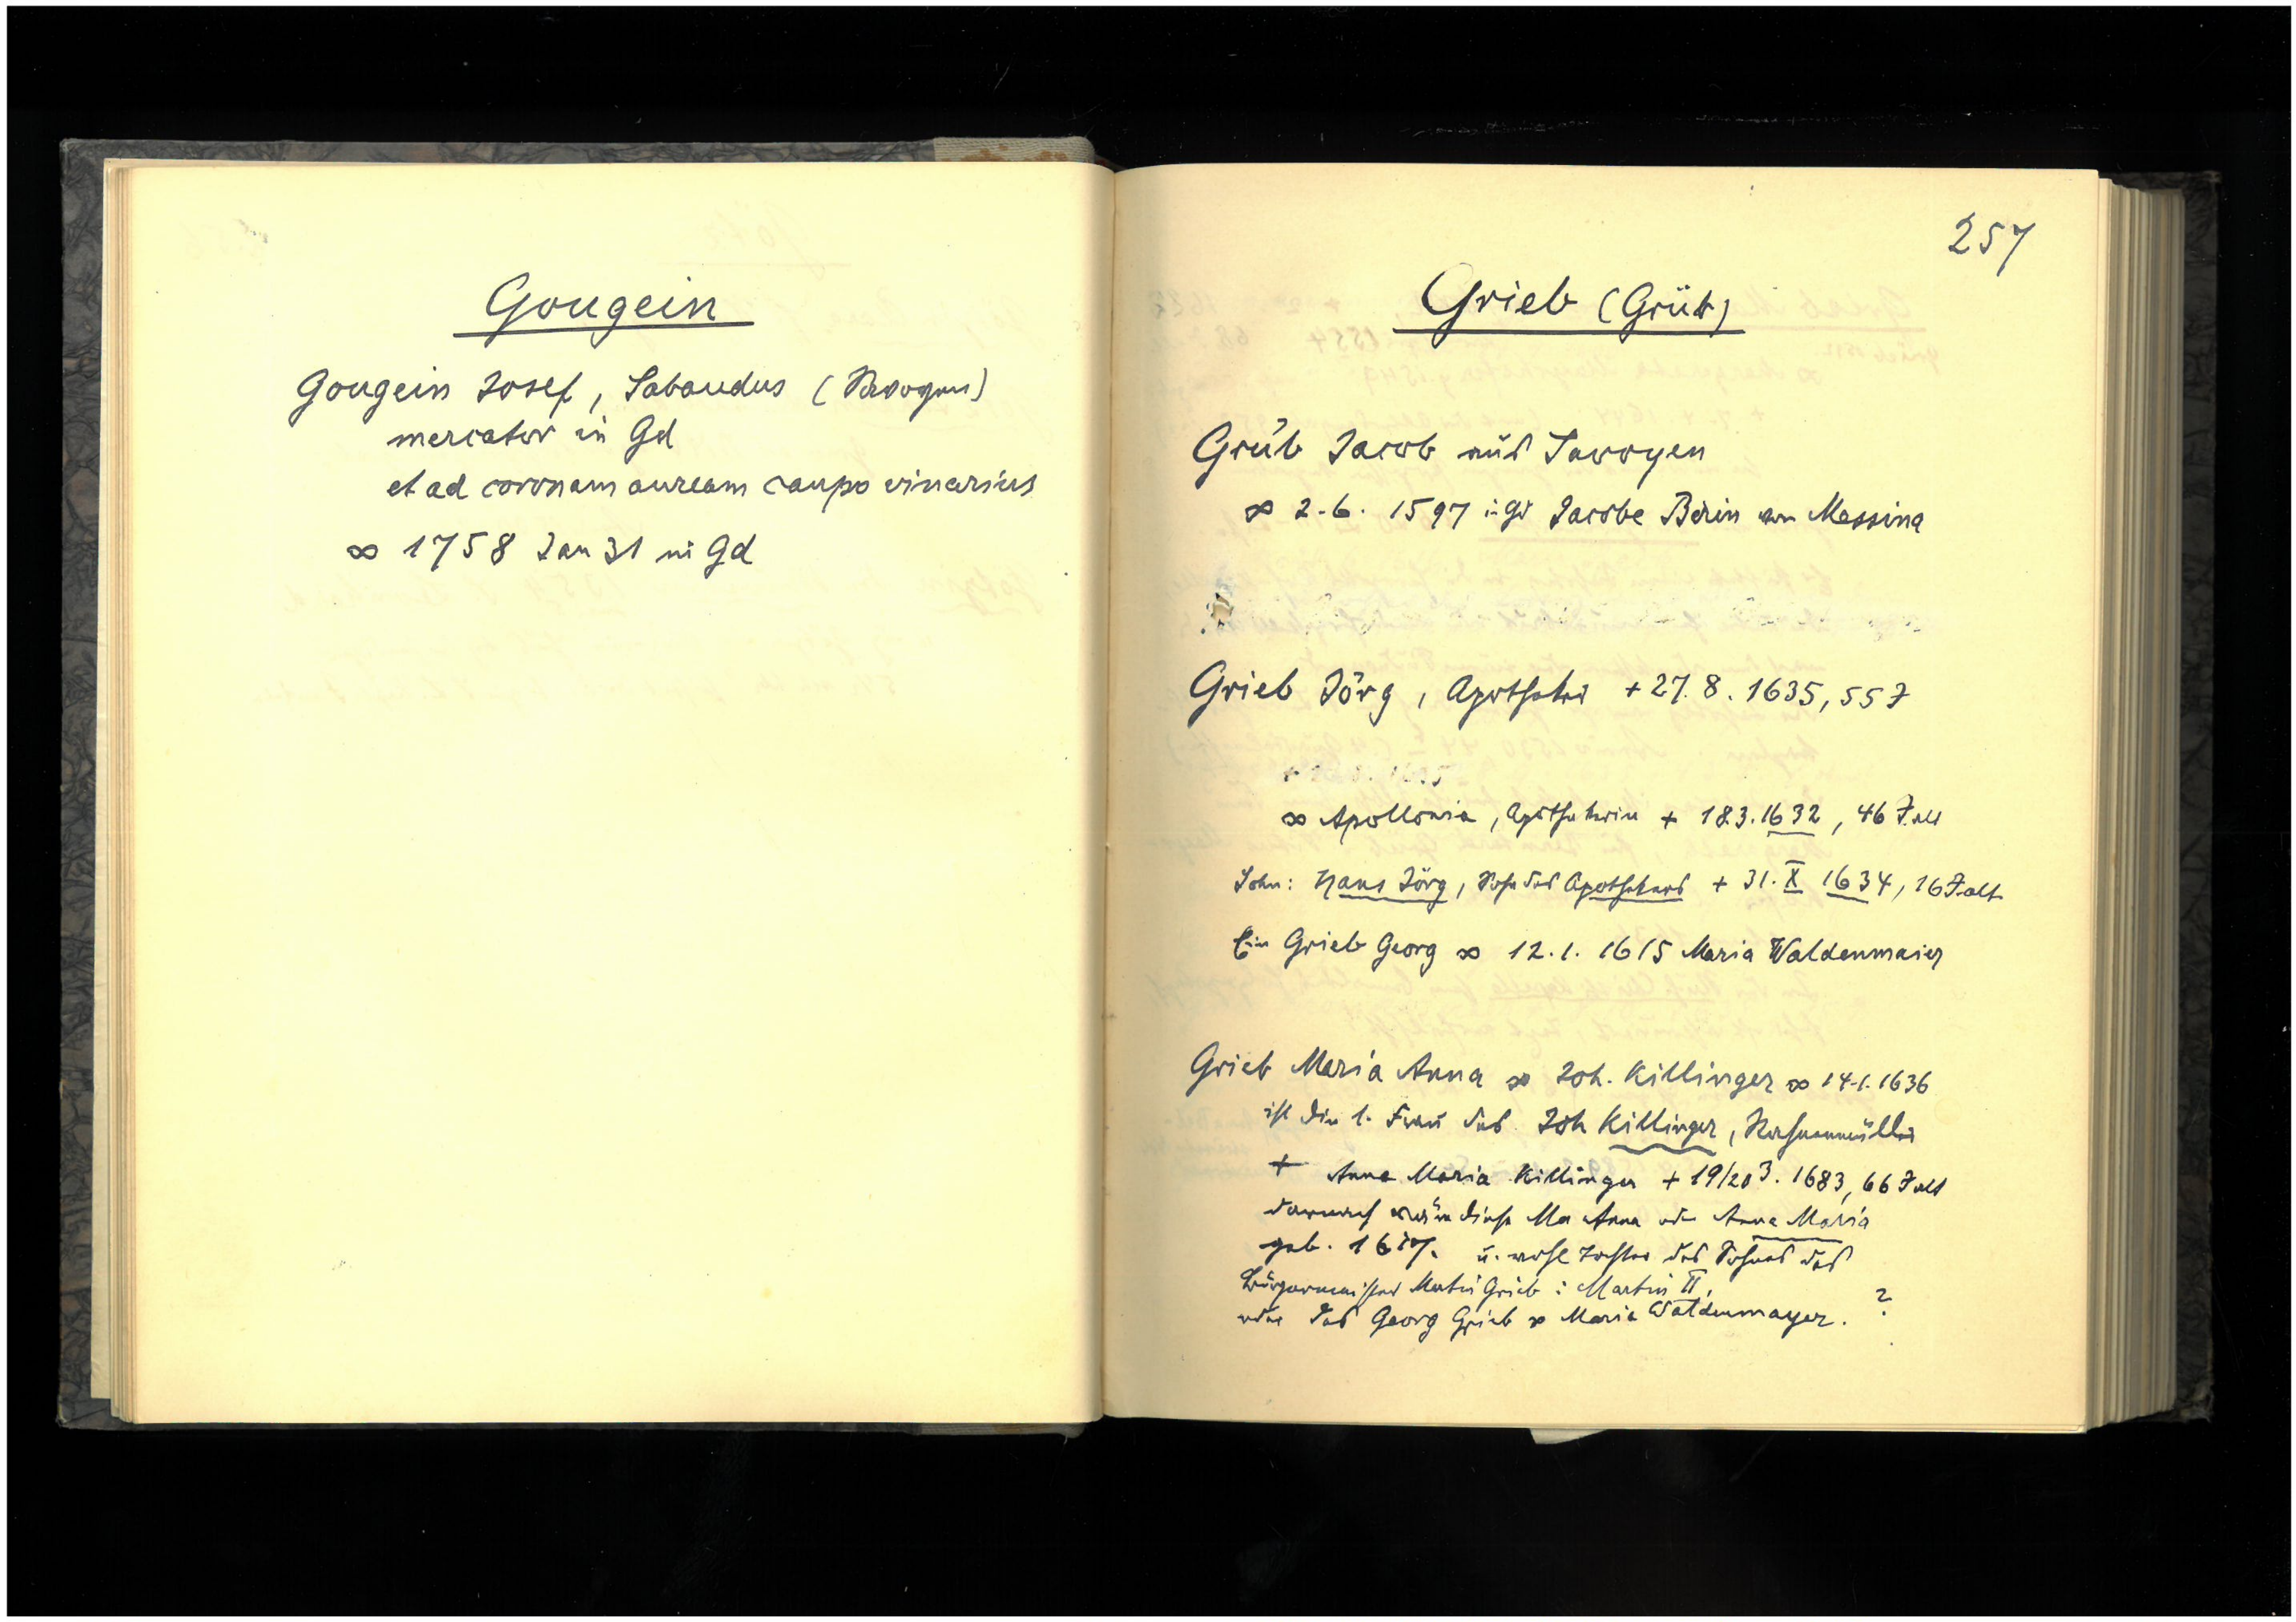 Gougein
Gougein Josef, Sabaudus (Savoyen)
mercator in Gd
et ad coronam auream caupo vinarius
∞ 1758 Jan 31 in Gd
257
Grieb (Grüb)
Grüb Jacob aus Savoyen
∞ 2.6. 1597 in Gd Jacobe Birin von Messina
Grieb Jörg, Apotheker + 27.8.1635, 55 J
∞ Apollonia, Apothekerin + 18.3.1632, 46 J. alt
Sohn: Hans Jörg, Sohn des Apothekers + 31. X 1634, 16 J. alt
Ein Grieb Georg ∞ 12.1.1615 Maria Waldenmaier
Grieb Maria Anna ∞ Joh. Killinger ∞ 14.1.1636
ist die 1. Frau des Joh Killinger,
+ Anna Maria Killinger + 19/20 3. 1683, 66 J alt
darnach wäre diese Ma Anna oder Anna Maria
geb. 1617. u. wohl Tochter des Sohnes des
Bürgermeister Martin Grieb : Martin II,
oder des Georg Grieb ∞ Maria Waldenmayer. ?